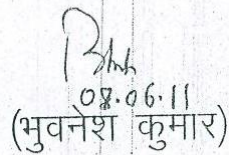 08.06.11
(भुवनेश कुमार)